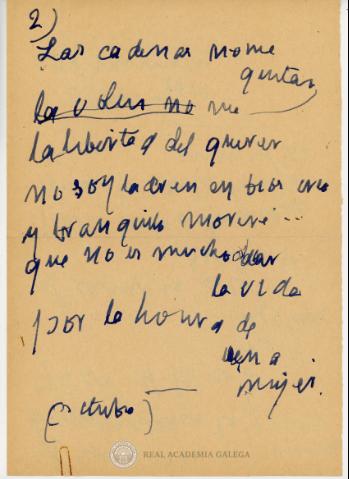 2)
Las cadenas no me
quitan
la v no me
la libertad del querer
no soy ladron en Dios creo
y tranquilo moriré...
que no es mucho dar
la vida
por la honra de
una
mujer.
REAL ACADEMIA GALEGA